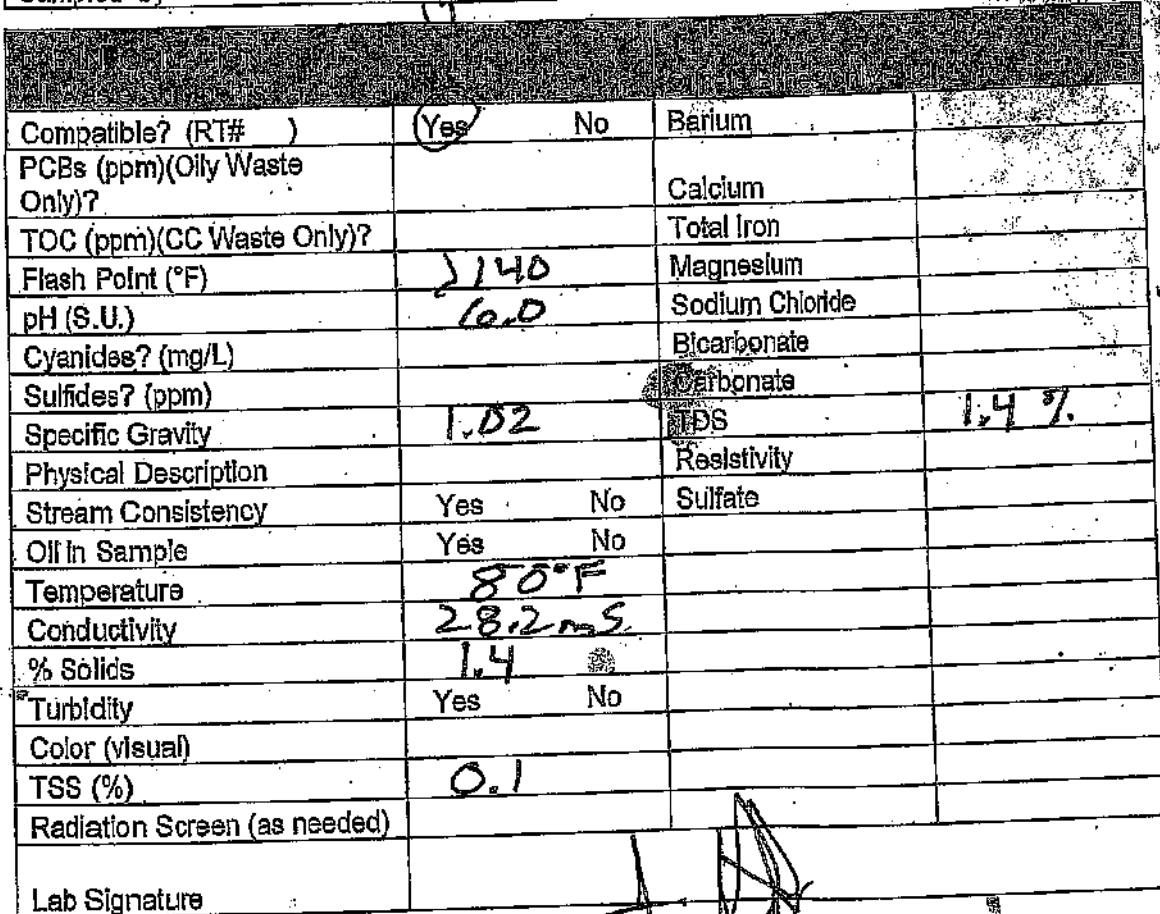 Sampled by
LAB INFORMATION
Compatible? (RT# ) Yes No Barium
PCBs (ppm)(Oily Waste
Only)? Calcium
TOC (ppm)(CC Waste Only)? Total Iron
Flash Point (°F) >140 Magnesium
pH (S.U.) 6.0 Sodium Chloride
Cyanides? (mg/L) Bicarbonate
Sulfides? (ppm) Carbonate
Specific Gravity 1.02 TDS 1.4 %
Physical Description Resistivity
Stream Consistency Yes No Sulfate
Oil in Sample Yes No
Temperature 80°F
Conductivity 28.2 mS
% Solids 1.4
Turbidity Yes No
Color (visual)
TSS (%) 0.1
Radiation Screen (as needed)
Lab Signature